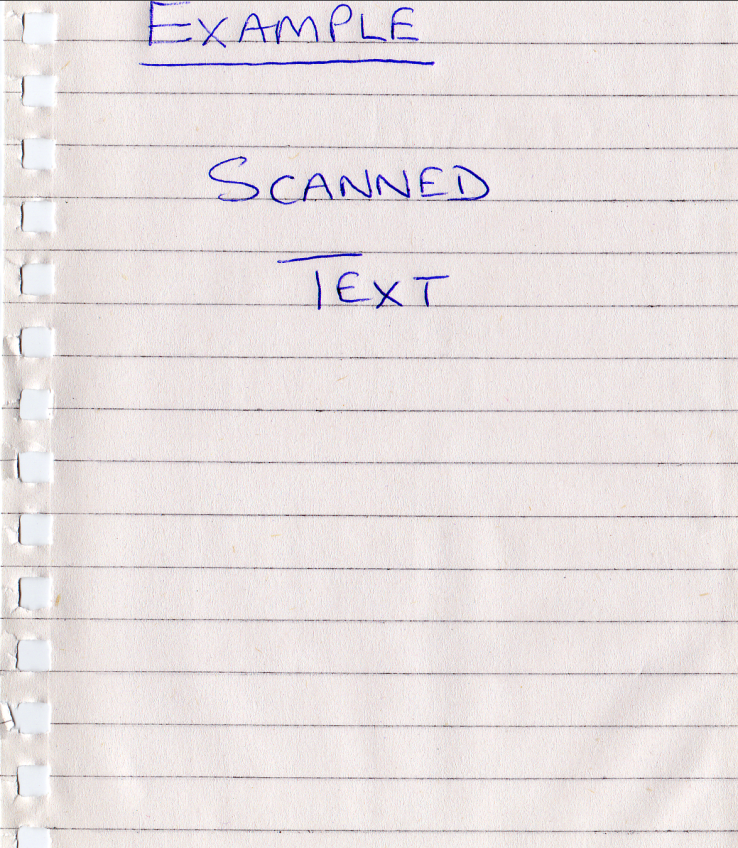 EXAMPLE
SCANNED
TEXT